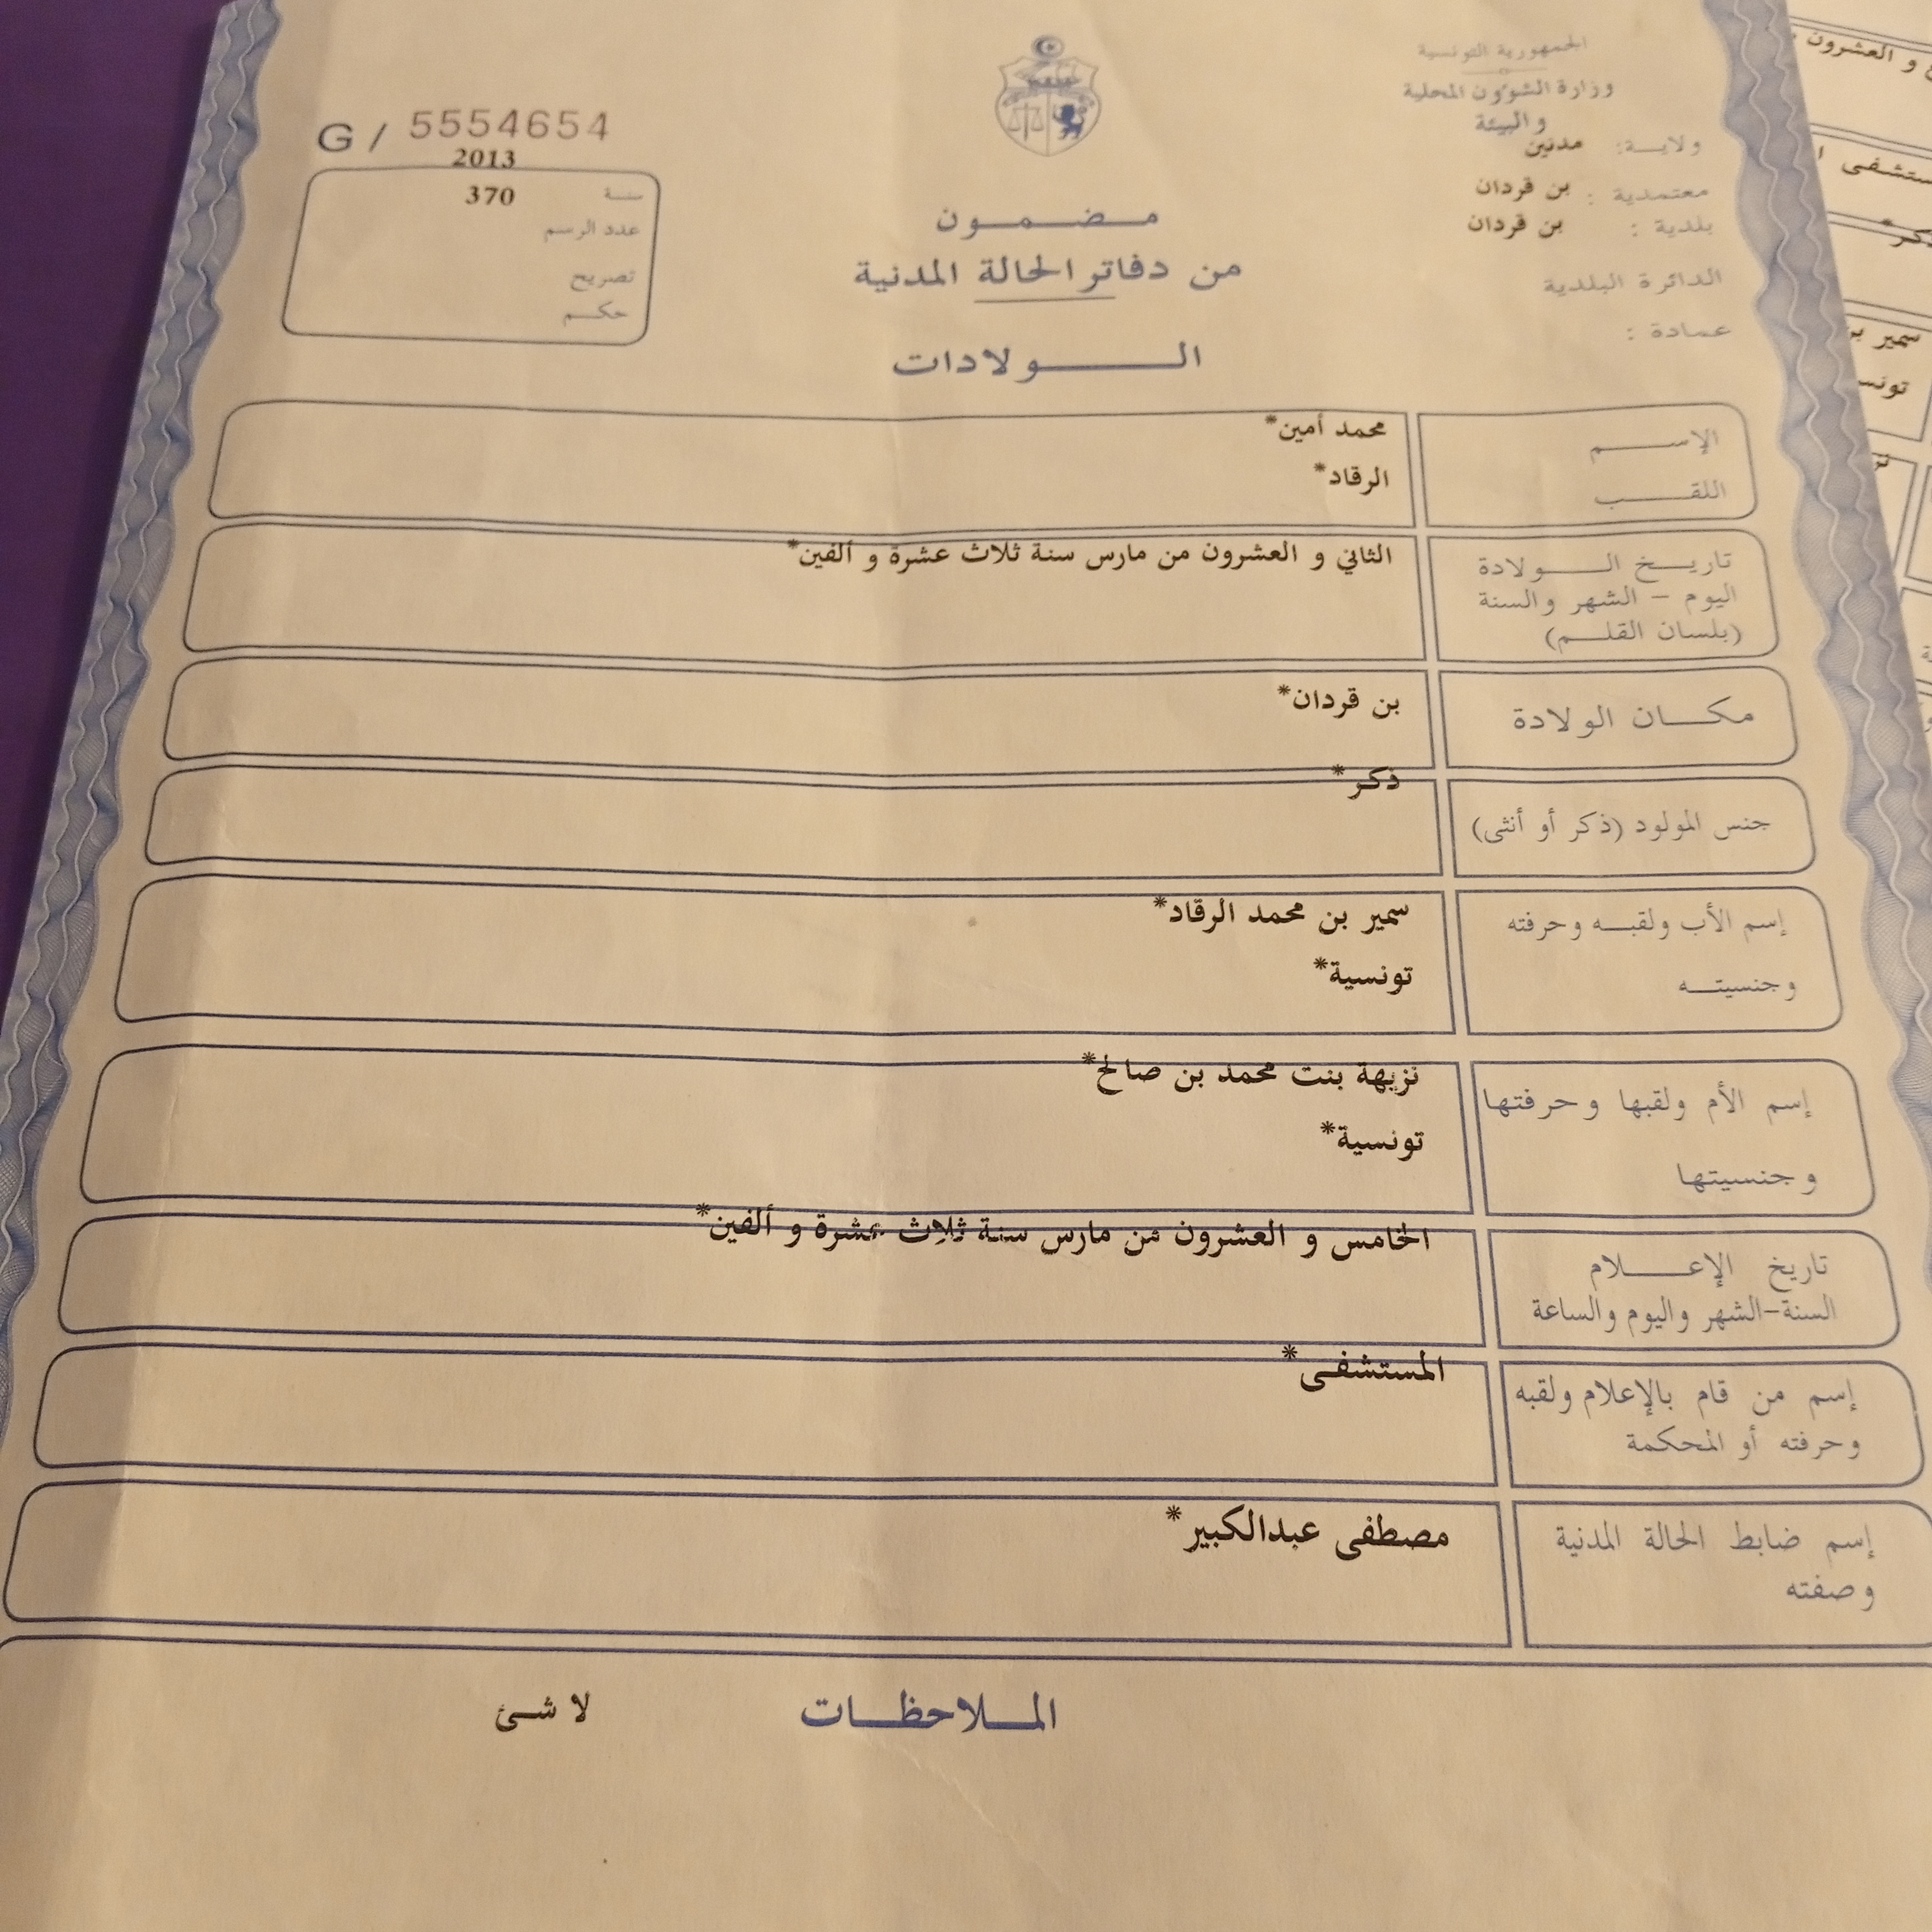 الجمهورية التونسية
وزارة الشؤون المحلية
والبيئة
ولايـــة: مدنين
معتمدية : بن قردان
بلدية : بن قردان
الدائرة البلدية
عمادة :
G / 5554654
2013
سنـة 370
عدد الرسم
تصريح
حكم
مـضـمـون
من دفاتر الحالة المدنية
الـولادات
الإسـم محمد أمين*
اللقـب الرقاد*
تاريـخ الـولادة الثاني و العشرون من مارس سنة ثلاث عشرة و ألفين*
اليوم - الشهر والسنة
(بلسان القلـم)
مكـان الولادة بن قردان*
جنس المولود (ذكر أو أنثى) ذكر*
إسم الأب ولقبـه وحرفته سمير بن محمد الرقاد*
وجنسيتـه تونسية*
إسم الأم ولقبها وحرفتها نزيهة بنت محمد بن صالح*
وجنسيتها تونسية*
تاريخ الإعـلام الخامس و العشرون من مارس سنة ثلاث عشرة و ألفين*
السنة-الشهر واليوم والساعة
إسم من قام بالإعلام ولقبه المستشفى*
وحرفته أو المحكمة
إسم ضابط الحالة المدنية مصطفى عبدالكبير*
وصفته
المـلاحظـات لا شئ
و العشرون
سمير بن